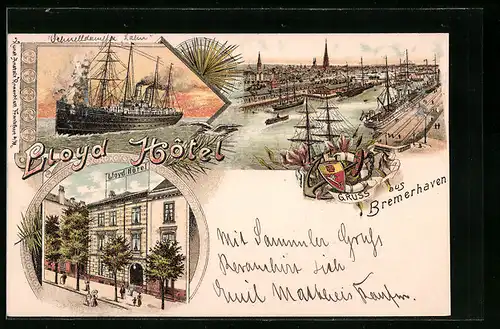 "Schnelldampfer Lahn"
Lloyd Hôtel
Lloyd Hôtel
GRUSS aus
Bremerhaven
Mit Sammler Gruß
Revanchirt sich
Emil